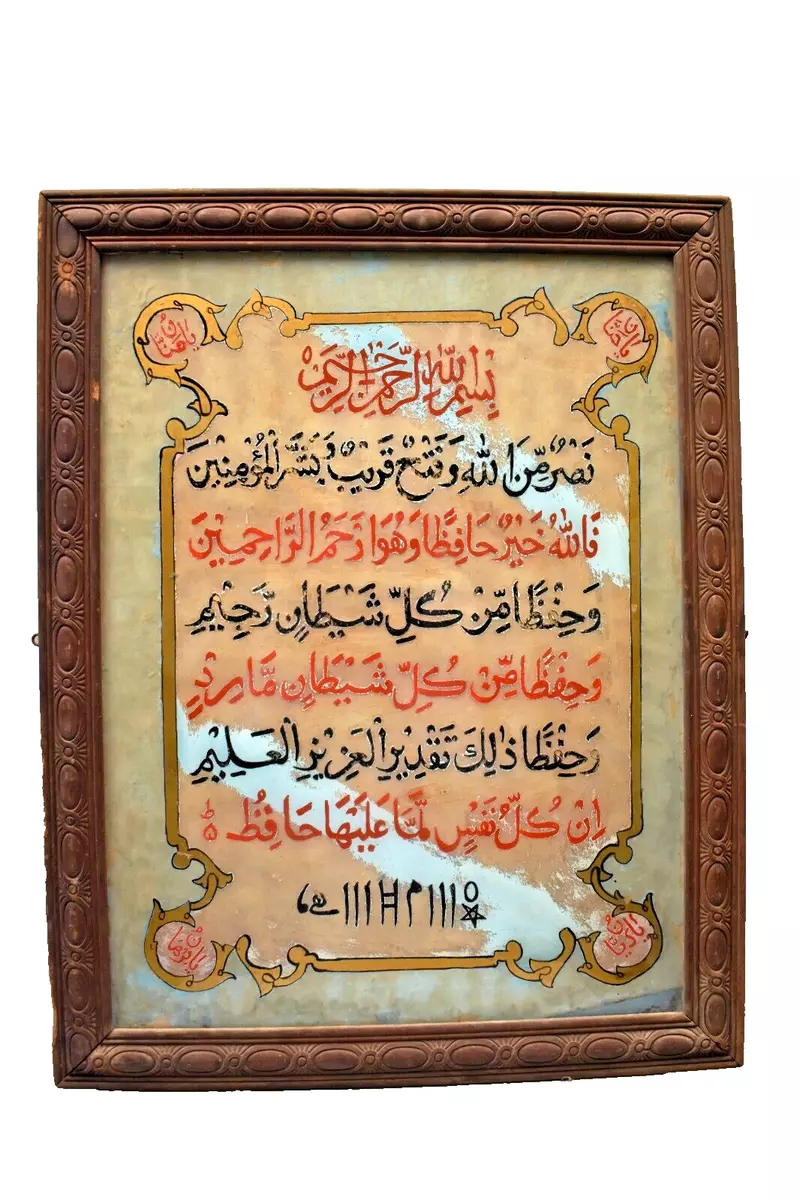 يافتاح
يامنان
بِسْمِ اللهِ الرَّحْمٰنِ الرَّحِيْمِ
نَصْرٌ مِّنَ اللهِ وَفَتْحٌ قَرِيْبٌ وَبَشِّرِ الْمُؤْمِنِيْنَ
فَاللهُ خَيْرٌ حَافِظًا وَهُوَ اَرْحَمُ الرَّاحِمِيْنَ
وَحِفْظًا مِّنْ كُلِّ شَيْطَانٍ رَّجِيْمٍ
وَحِفْظًا مِّنْ كُلِّ شَيْطَانٍ مَّارِدٍ
وَحِفْظًا ذٰلِكَ تَقْدِيْرُ الْعَزِيْزِ الْعَلِيْمِ
اِنْ كُلُّ نَفْسٍ لَّمَّا عَلَيْهَا حَافِظٌ